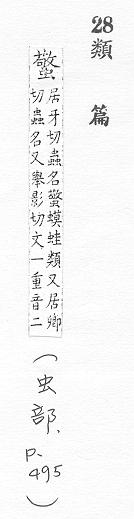 28
類篇
䗔
居牙切蟲名䗔蟆蛙類又居卿
切蟲名又舉影切文一重音二
(虫部、
p.
495)